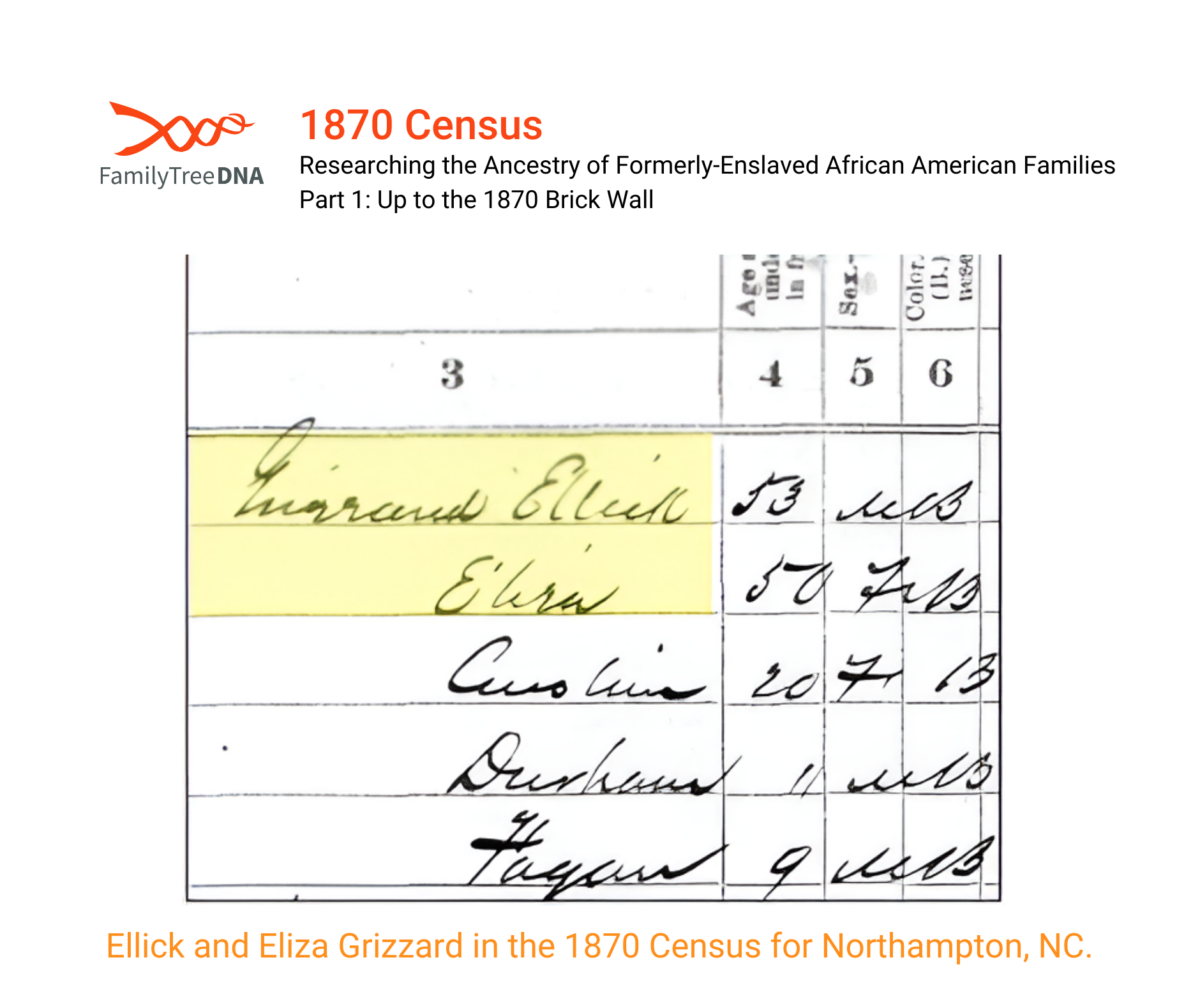 FamilyTreeDNA
1870 Census
Researching the Ancestry of Formerly-Enslaved African American Families
Part 1: Up to the 1870 Brick Wall
Age
und
in fr
Sex.
Color.
(B.)
3 4 5 6
Ellick 53 M B
Eliza 50 F B
Caroline 20 F B
Durham 11 M B
9 M B
Ellick and Eliza Grizzard in the 1870 Census for Northampton, NC.